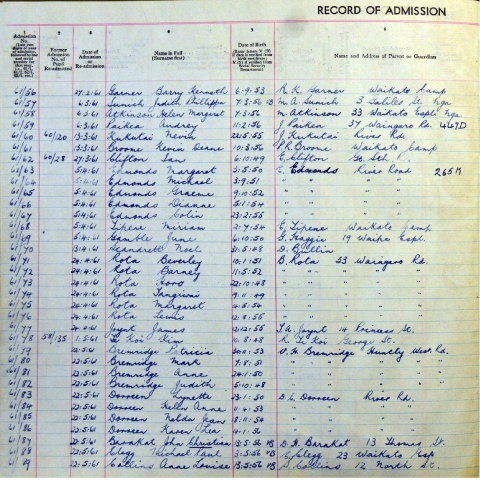 RECORD OF ADMISSION
Admission No.
Former Admission No. of Pupil Re-admitted
Date of Admission or Re-admission
Name in Full (Surname first)
Date of Birth
Name and Address of Parent or Guardian
61/56 27.2.61 Garner Barry Kenneth 6.9.53 R. R. Garner Waikato Camp
61/57 6.3.61 Sunich Judith Phillippa 7.3.56 VB M. A. Sunich 3 St. Nga
61/58 6.3.61 Atkinson Helen Margaret 7.3.56 M. Atkinson 53 Waikato Espl. Nga
61/59 6.3.61 Parken Audrey 11.2.56 J. Parken 34 Waingaro Rd. 467D
61/60 60/20 13.3.61 Kukutai Nevin 22.5.55 J. Kukutai River Rd
61/61 13.3.61 Broome Kevin Deane 10.3.56 P. R. Broome Waikato Camp
61/62 60/28 27.3.61 Clifton Ian 6.10.49 E. Clifton Gt. Sth. R.
61/63 5.4.61 Edmonds Margaret 3.5.50 E. Edmonds River Road 265K
61/64 5.4.61 Edmonds Michael 3.9.51 " " "
61/65 5.4.61 Edmonds Graeme 9.10.52 " " "
61/66 5.4.61 Edmonds Dianne 5.1.54 " " "
61/67 5.4.61 Edmonds Colin 23.2.55 " " "
61/68 5.4.61 Tipene Miriam 2.7.54 E. Tipene Waikato Camp
61/69 5.4.61 Gamble June 6.10.50 G. 19 Waipa Espl.
61/70 3.4.61 Noel 6.5.48 D.
61/71 24.4.61 Kota Beverley 10.1.51 B. Kota 53 Waingaro Rd.
61/72 24.4.61 Kota Barney 11.5.52 " " "
61/73 24.4.61 Kota 22.10.48 " " "
61/74 24.4.61 Kota Tangiwai 19.11.49 " " "
61/75 24.4.61 Kota Margaret 14.5.54 " " "
61/76 24.4.61 Kota Lewis 12.8.55 " " "
61/77 24.4.61 Joynt James 12.12.55 T. A. Joynt 14 Princess St.
61/78 58/135 1.5.61 Te Koi Kim 11.8.48 R. Te Koi George St.
61/79 22.5.61 Bremridge Patricia 30.11.53 V. H. Bremridge Huntly West Rd.
61/80 22.5.61 Bremridge Mark 7.8.51 " " "
61/81 22.5.61 Bremridge Anne 24.1.50 " " "
61/82 22.5.61 Bremridge Judith 5.10.48 " " "
61/83 22.5.61 Lynette 23.1.50 D. C. River Rd.
61/84 22.5.61 Anne 11.4.53 " " "
61/85 22.5.61 18.11.54 " " "
61/86 22.5.61 Karen 14.1.56 " " "
61/87 22.5.61 Barakat John Christian 13.5.56 VB D. G. Barakat 13 Thomas St.
61/88 22.5.61 Clegg Michael Paul 3.5.56 VB E. Clegg 23 Waikato Esp
61/89 22.5.61 Collins Anne Louise 13.5.56 VB S. Collins 12 North St.